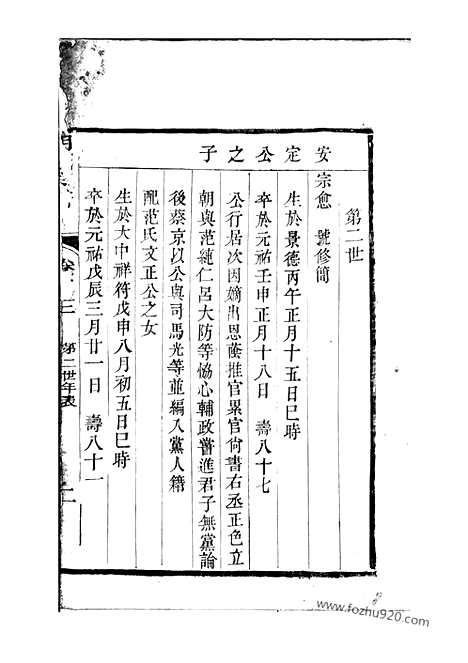 第二世
安定公之子
宗愈　號修簡
生於景德丙午正月十五日巳時
卒於元祐壬申正月十八日　壽八十七
公行居次因嫡出恩蔭推官累官尚書右丞正色立
朝與范純仁呂大防等恊心輔政嘗進君子無黨論
後蔡京以公與司馬光等並編入黨人籍
配范氏文正公之女
生於大中祥符戊申八月初五日巳時
卒於元祐戊辰三月廿一日　壽八十一
卷
三
第二世年表
www.fozhu920.com